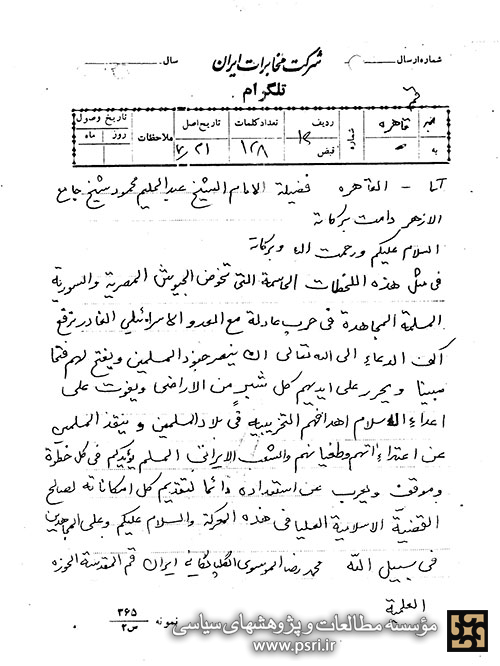 شماره ارسال
شرکت مخابرات ایران
سال
تلگرام
قم
از
قاهره
به
شماره
ردیف
قبض
تعداد کلمات
۱۲۸
تاریخ اصل
۲۱/۷
ملاحظات
تاریخ وصول
روز
ماه
القاهره فضیلة الامام الشیخ عبدالحلیم محمود شیخ جامع
الازهر دامت برکاته
السلام علیکم ورحمت الله وبرکاته
فی مثل هذه اللحظات الحاسمة التی تخوض الجیوش المصریة والسوریة
المسلمة المجاهدة فی حرب عادلة مع العدو الاسرائیلی الغادر نرفع
اکف الدعاء الی الله تعالی ان ینصر جنود المسلمین ویفتح لهم فتحا
مبینا ویحرر علی ایدیهم کل شبر من الاراضی ویفوت علی
اعداء الاسلام اهدافهم التخریبیه فی بلاد المسلمین وینقذ المسلمین
عن اعتداءاتهم وطغیانهم والشعب الایرانی المسلم یؤیدکم فی کل خطوة
وموقف ویعرب عن استعداده دائما لتقدیم کل امکاناته لصالح
القضیة الاسلامیة العلیا فی هذه المعرکة والسلام علیکم وعلی المجاهدین
فی سبیل الله محمد رضا الموسوی الگلپایگانی ایران قم المقدسة الحوزه
العلمیة
نمونه ۳۶۵
س۲
مؤسسه مطالعات و پژوهشهای سیاسی
www.psri.ir